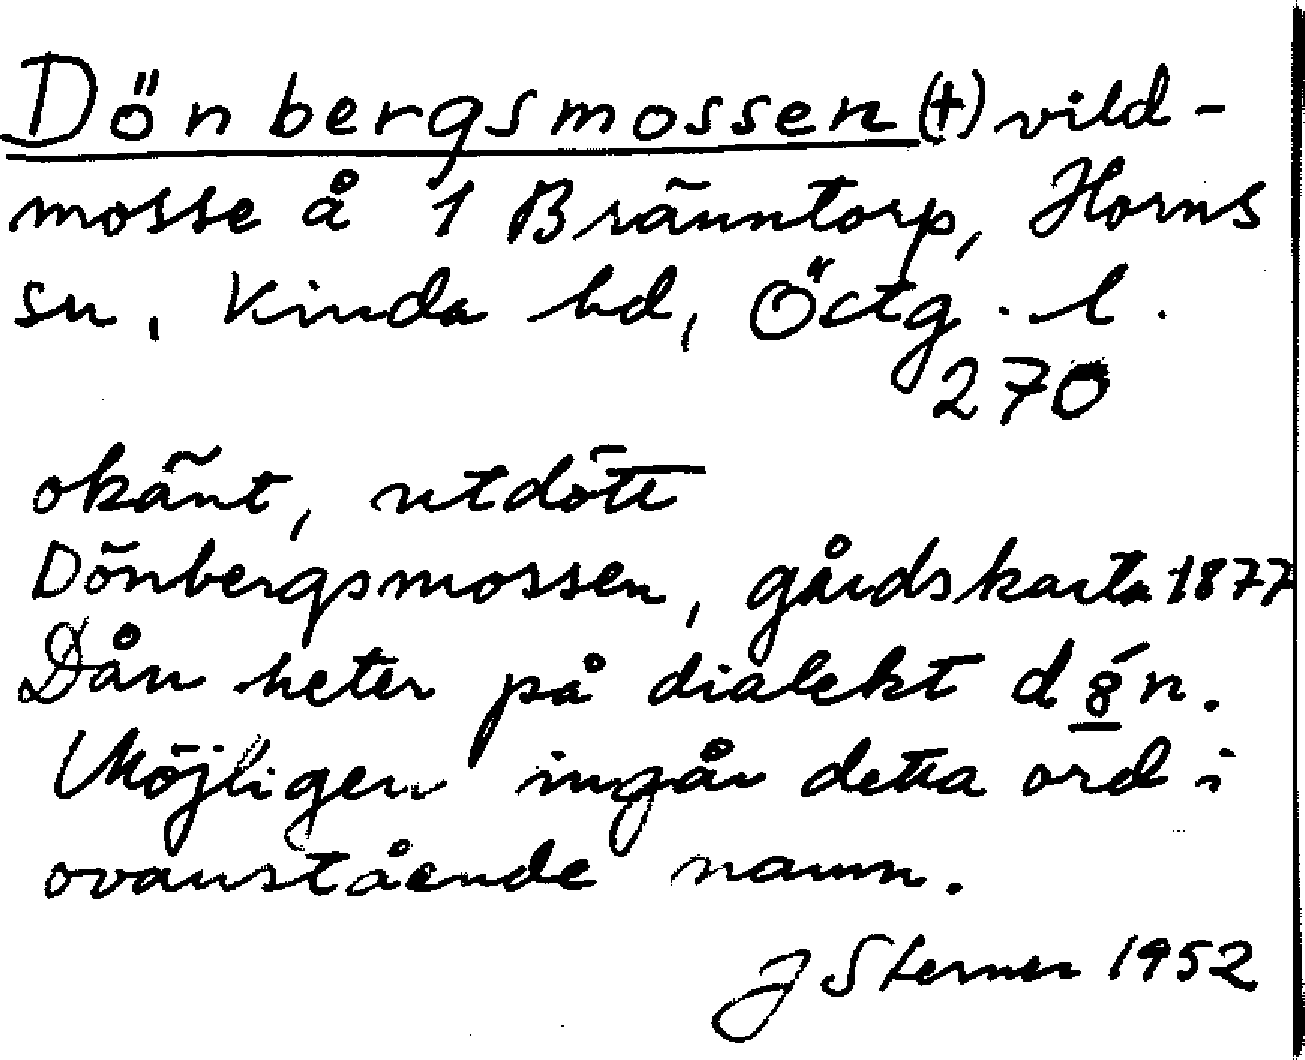 Dönbergsmossen (†) vild-
mosse å 1 Bränntorp, Horns
sn, Kinda hd, Östg. l.
270
okänt, utdött
Dönbergsmossen, gårdskarta 1877
Dån heter på dialekt d8́n.
Möjligen ingår detta ord i
ovanstående namn.
J Sterner 1952